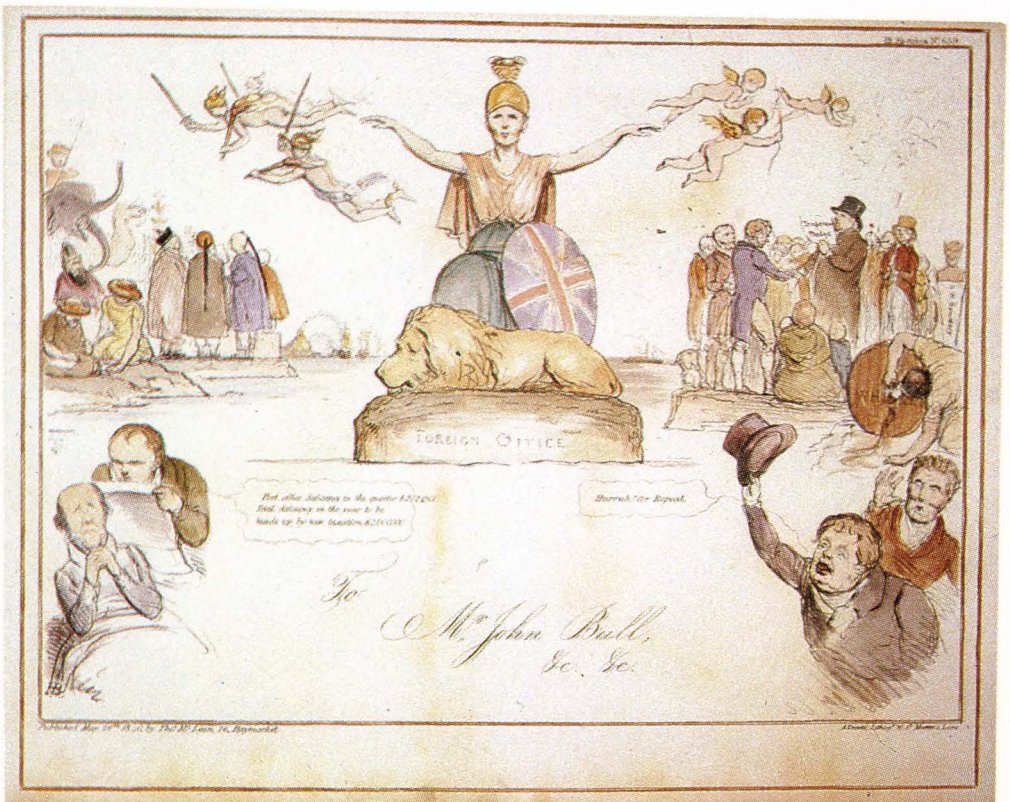 FOREIGN OFFICE
Post office deficiency in the quarter
Total deficiency in the year to be
made up by new taxation
Hurrah! for Repeal.
To
Mr John Bull,
&c. &c.
HB
Published May 26th 18 by Thos McLean, 26, Haymarket.